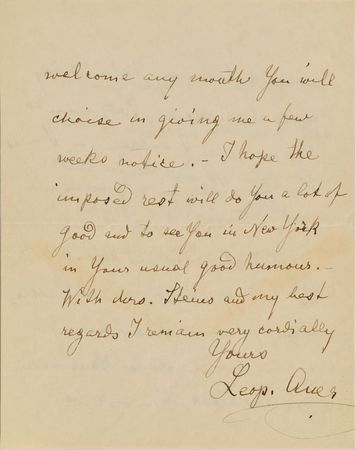 welcome any month You will
choise in giving me a few
weeks notice. - I hope the
imposed rest will do You a lot of
good and to see You in New York
in Your usual good humour. -
With and my best
regards I remain very cordially
Yours
Leop. Auer